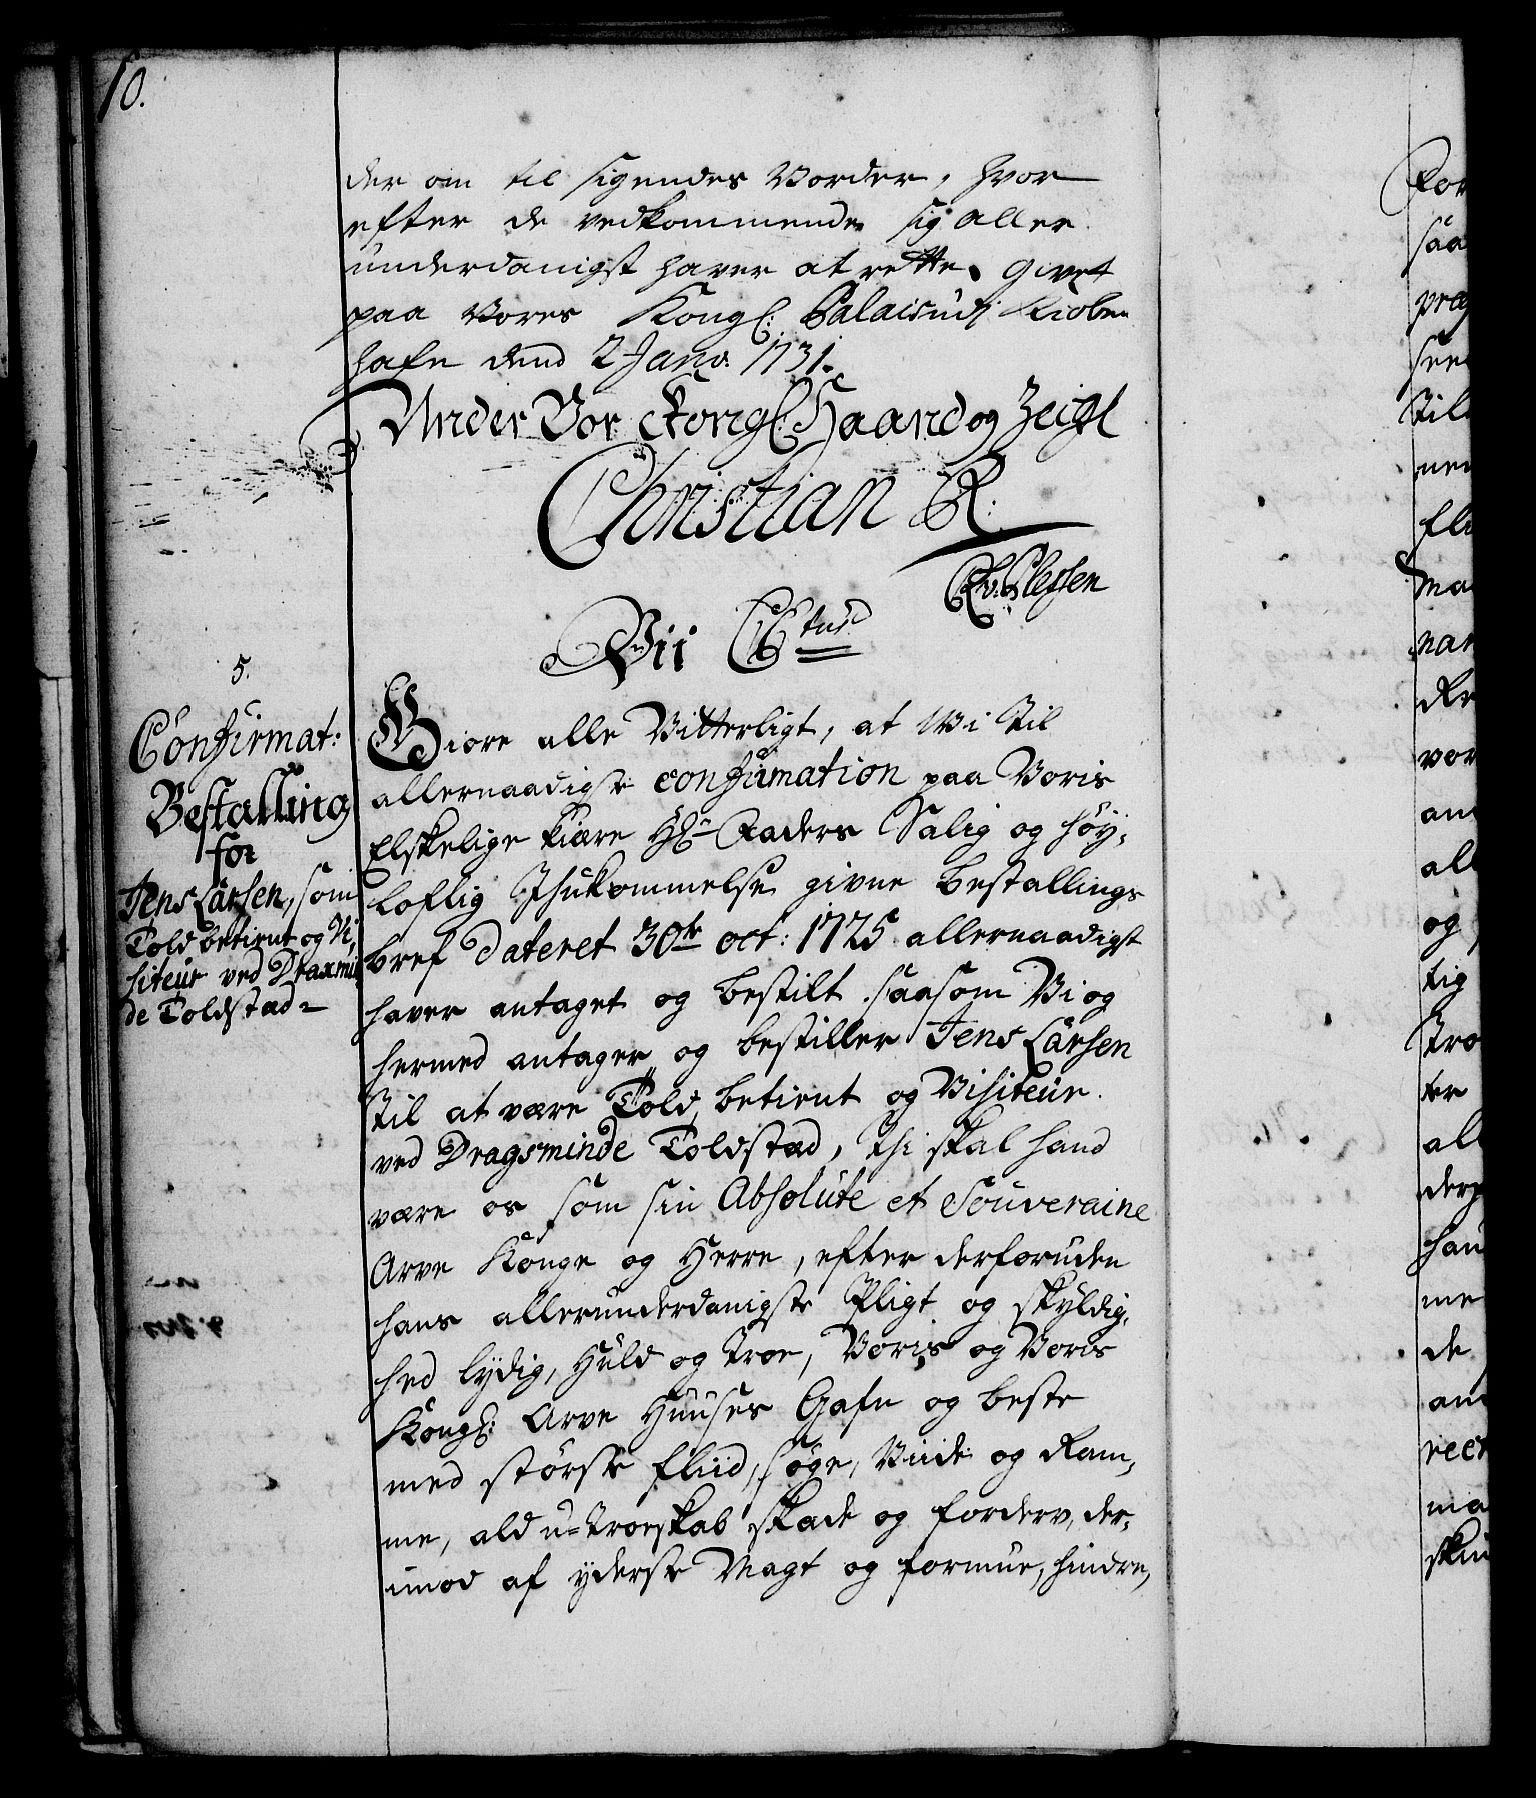 10.
der om til sigendes Vorder, hvor
efter de vedkommende sig aller
underdanigst haver at rette. Givet
paa Vores Kongl: Palais udj Kioben
hafn dend 2 Janv: 1731.
Under Vor Kongl: Haand og Zeigl
Christian R:
CAv: Plessen
Vii C6tus
5.
Confirmat:
Bestalling
for
Jens Larsen, som
Told betient og Vi,
siteur ved Draxmin
de Toldstæd
Giøre alle Vitterligt, at Wi til
allernaadigste confirmation paa Voris
Elskelige kiære Hr Faders Salig og høy,
loflig Ihukommelse givne Bestallings
bref Dateret 30te oct: 1725 allernaadigst
haver antaget og bestilt saasom Vi og
hermed antager og bestiller Jens Larsen
til at være Told betient og Visiteur
ved Dragsminde Toldstæd, thi skal hand
være os som sin Absolute et Souveraine
Arve Konge og Herre, efter derforuden
hans allerunderdanigste Pligt og skyldig,
hed lydig, Huld og troe, Voris og Voris
Kongl: Arve Huuses Gafn og beste
med største fliid, søge, Viide og Ram,
me, ald u=troeskab skade og forderv, der,
imod af yderste Magt og formue, hindre,